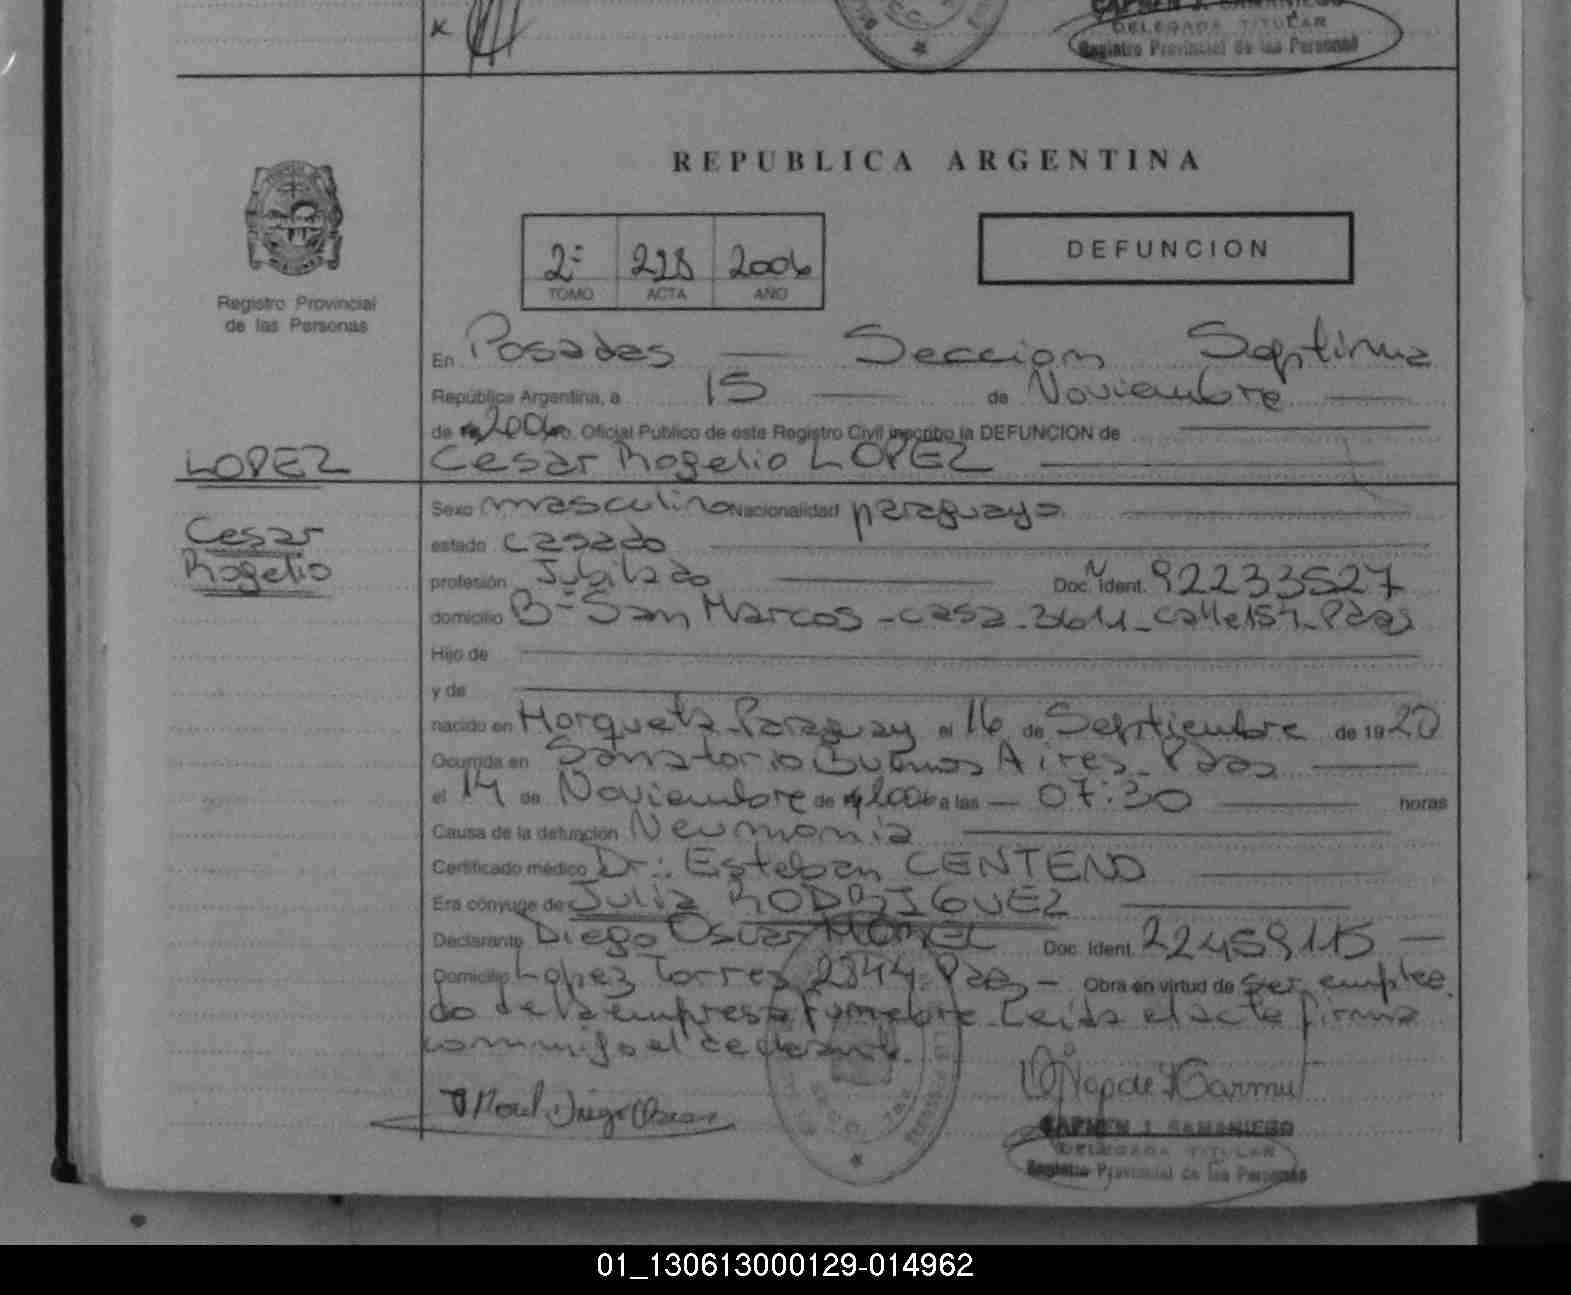 DELEGADA TITULAR
Registro Provincial de las Personas
REPUBLICA ARGENTINA
2º 228 2006
TOMO ACTA AÑO
DEFUNCION
Registro Provincial
de las Personas
En Posadas Seccion Septima
República Argentina, a 15 de Noviembre
de 2006 Oficial Público de este Registro Civil inscribo la DEFUNCION de
LOPEZ
Cesar Rogelio LOPEZ
Cesar
Rogelio
Sexo masculino Nacionalidad paraguaya
estado casado
profesión Jubilado Doc. N Ident. 92233527
domicilio Bº San Marcos - casa - 3611 - calle 157 - Pdas
Hijo de
y de
nacido en Horqueta - Paraguay el 16 de Septiembre de 1920
Ocurrida en Sanatorio Buenos Aires - Pdas
el 14 de Noviembre de 2006 a las 07:30 horas
Causa de la defunción Neumonia
Certificado médico Dr.: Esteban CENTENO
Era cónyuge de Julia RODRIGUEZ
Declarante Diego Oscar MOREL Doc. Ident. 22459115
Domicilio Lopez Torres 2344 - Pdas - Obra en virtud de ser emplea
do de la empresa funebre. Leida el acta firma
conmigo el declarante.
Morel Diego Oscar
CARMEN J. SAMANIEGO
DELEGADA TITULAR
Registro Provincial de las Personas
01_130613000129-014962